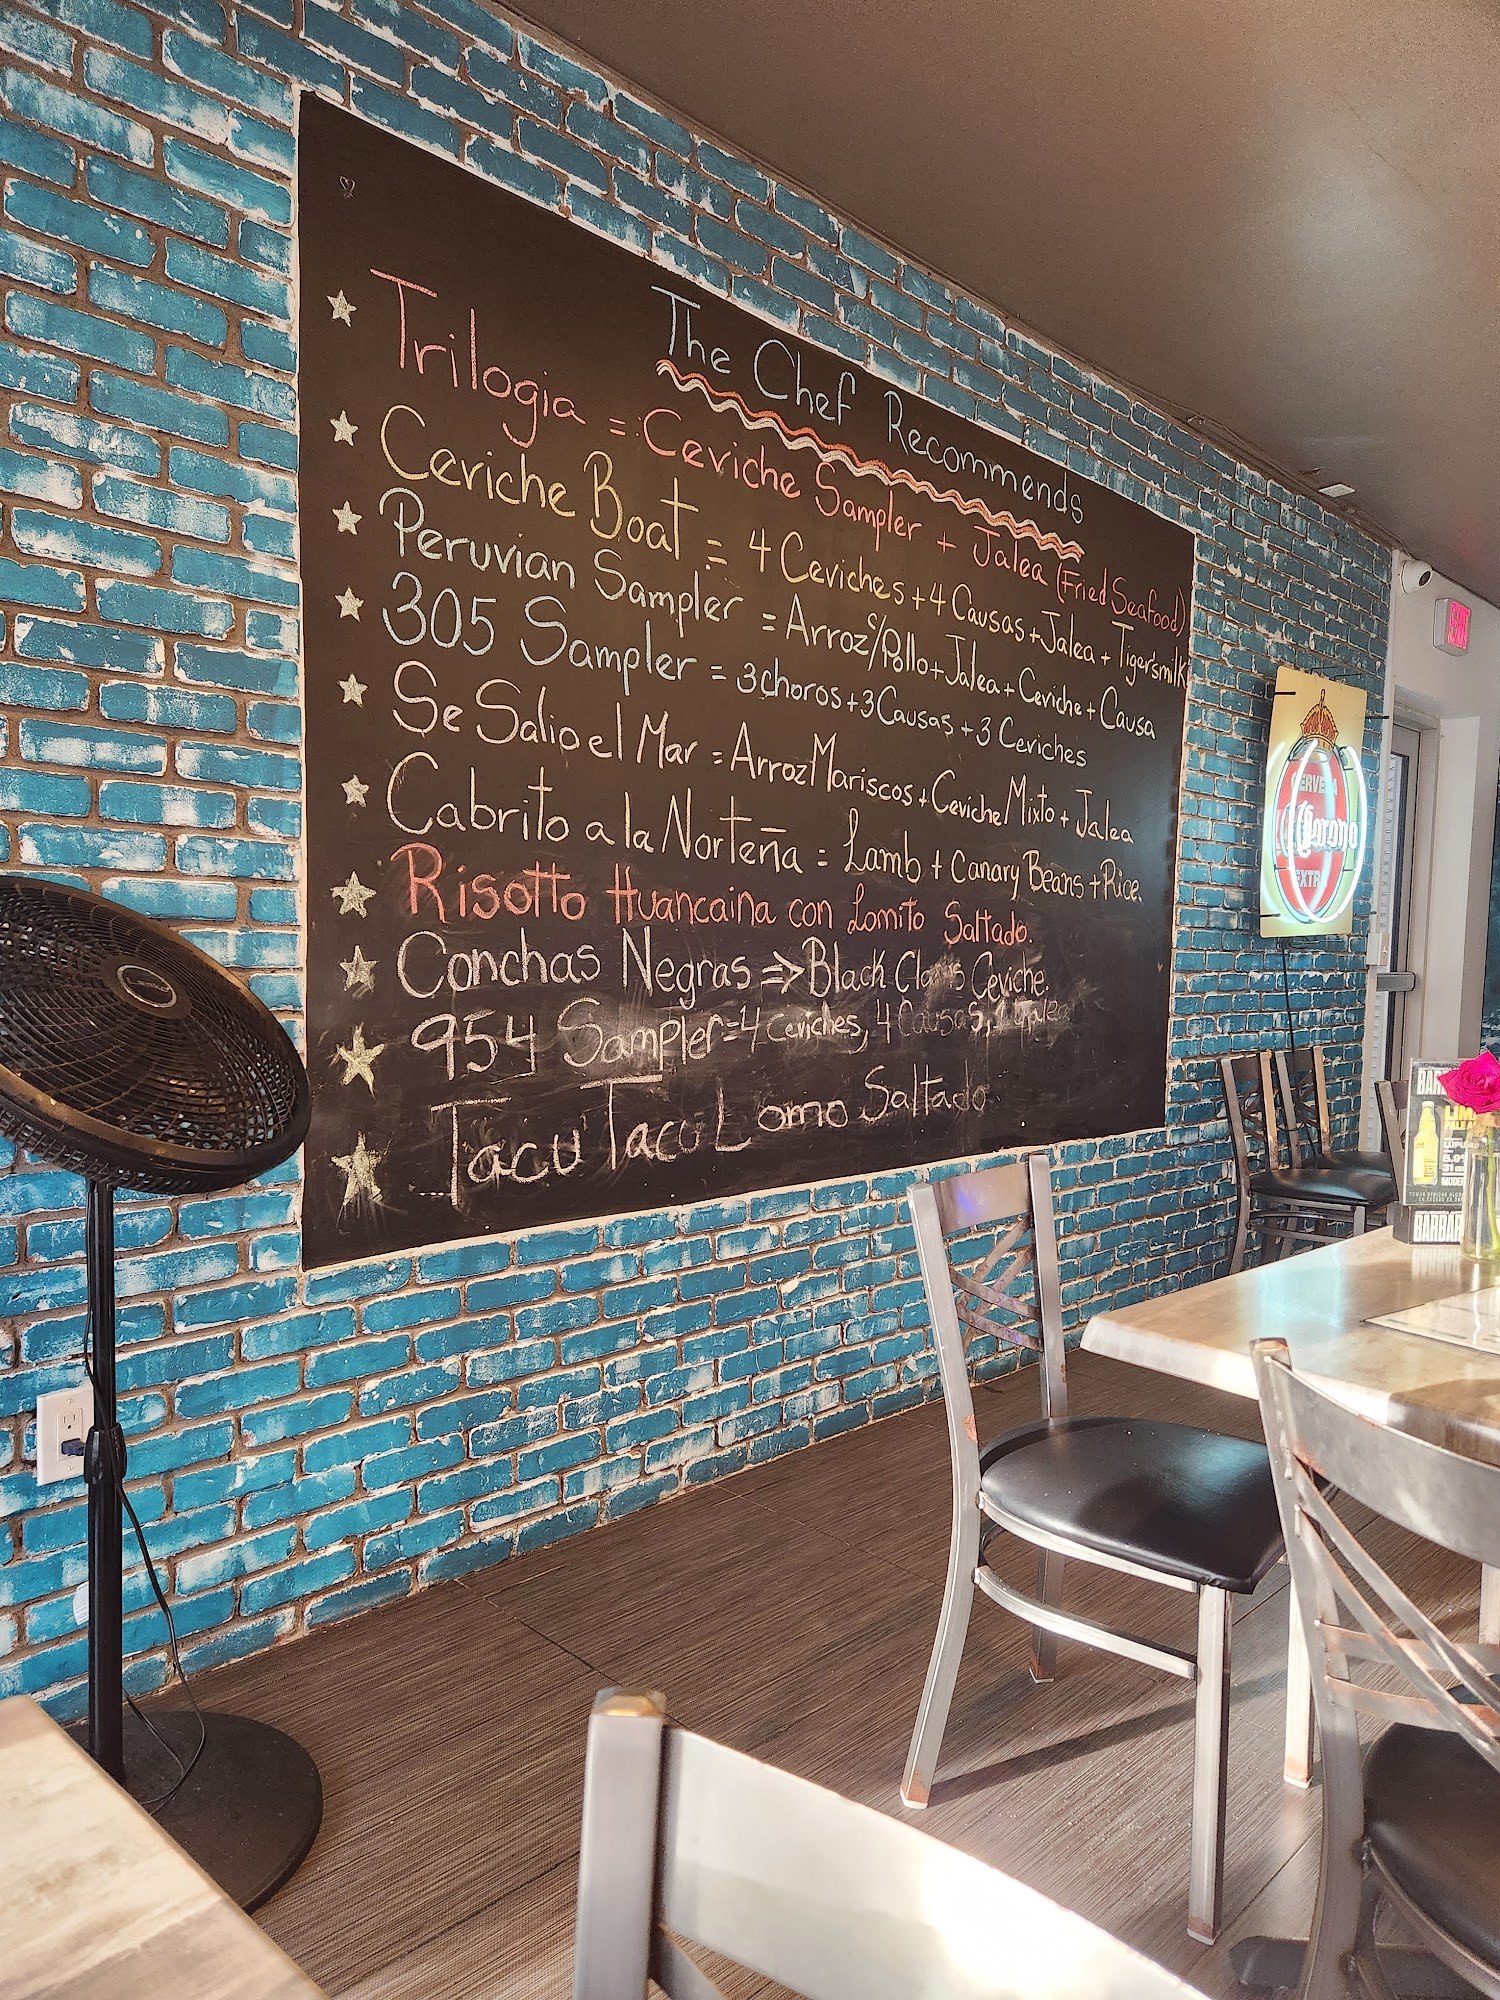 The Chef Recommends
Trilogia = Ceviche Sampler + Jalea (Fried Seafood)
Ceviche Boat = 4 Ceviches + 4 Causas + Jalea + Tiger's milk
Peruvian Sampler = Arroz c/Pollo + Jalea + Ceviche + Causa
305 Sampler = 3 choros + 3 Causas + 3 Ceviches
Se Salio el Mar = Arroz Mariscos + Ceviche Mixto + Jalea
Cabrito a la Norteña = Lamb + Canary Beans + Rice.
Risotto Huancaina con Lomito Saltado.
Conchas Negras => Black Clams Ceviche.
954 Sampler = 4 ceviches, 4 Causas, 1 Jalea
Tacu Tacu Lomo Saltado
EXIT
CERVEZA
Corona
EXTRA